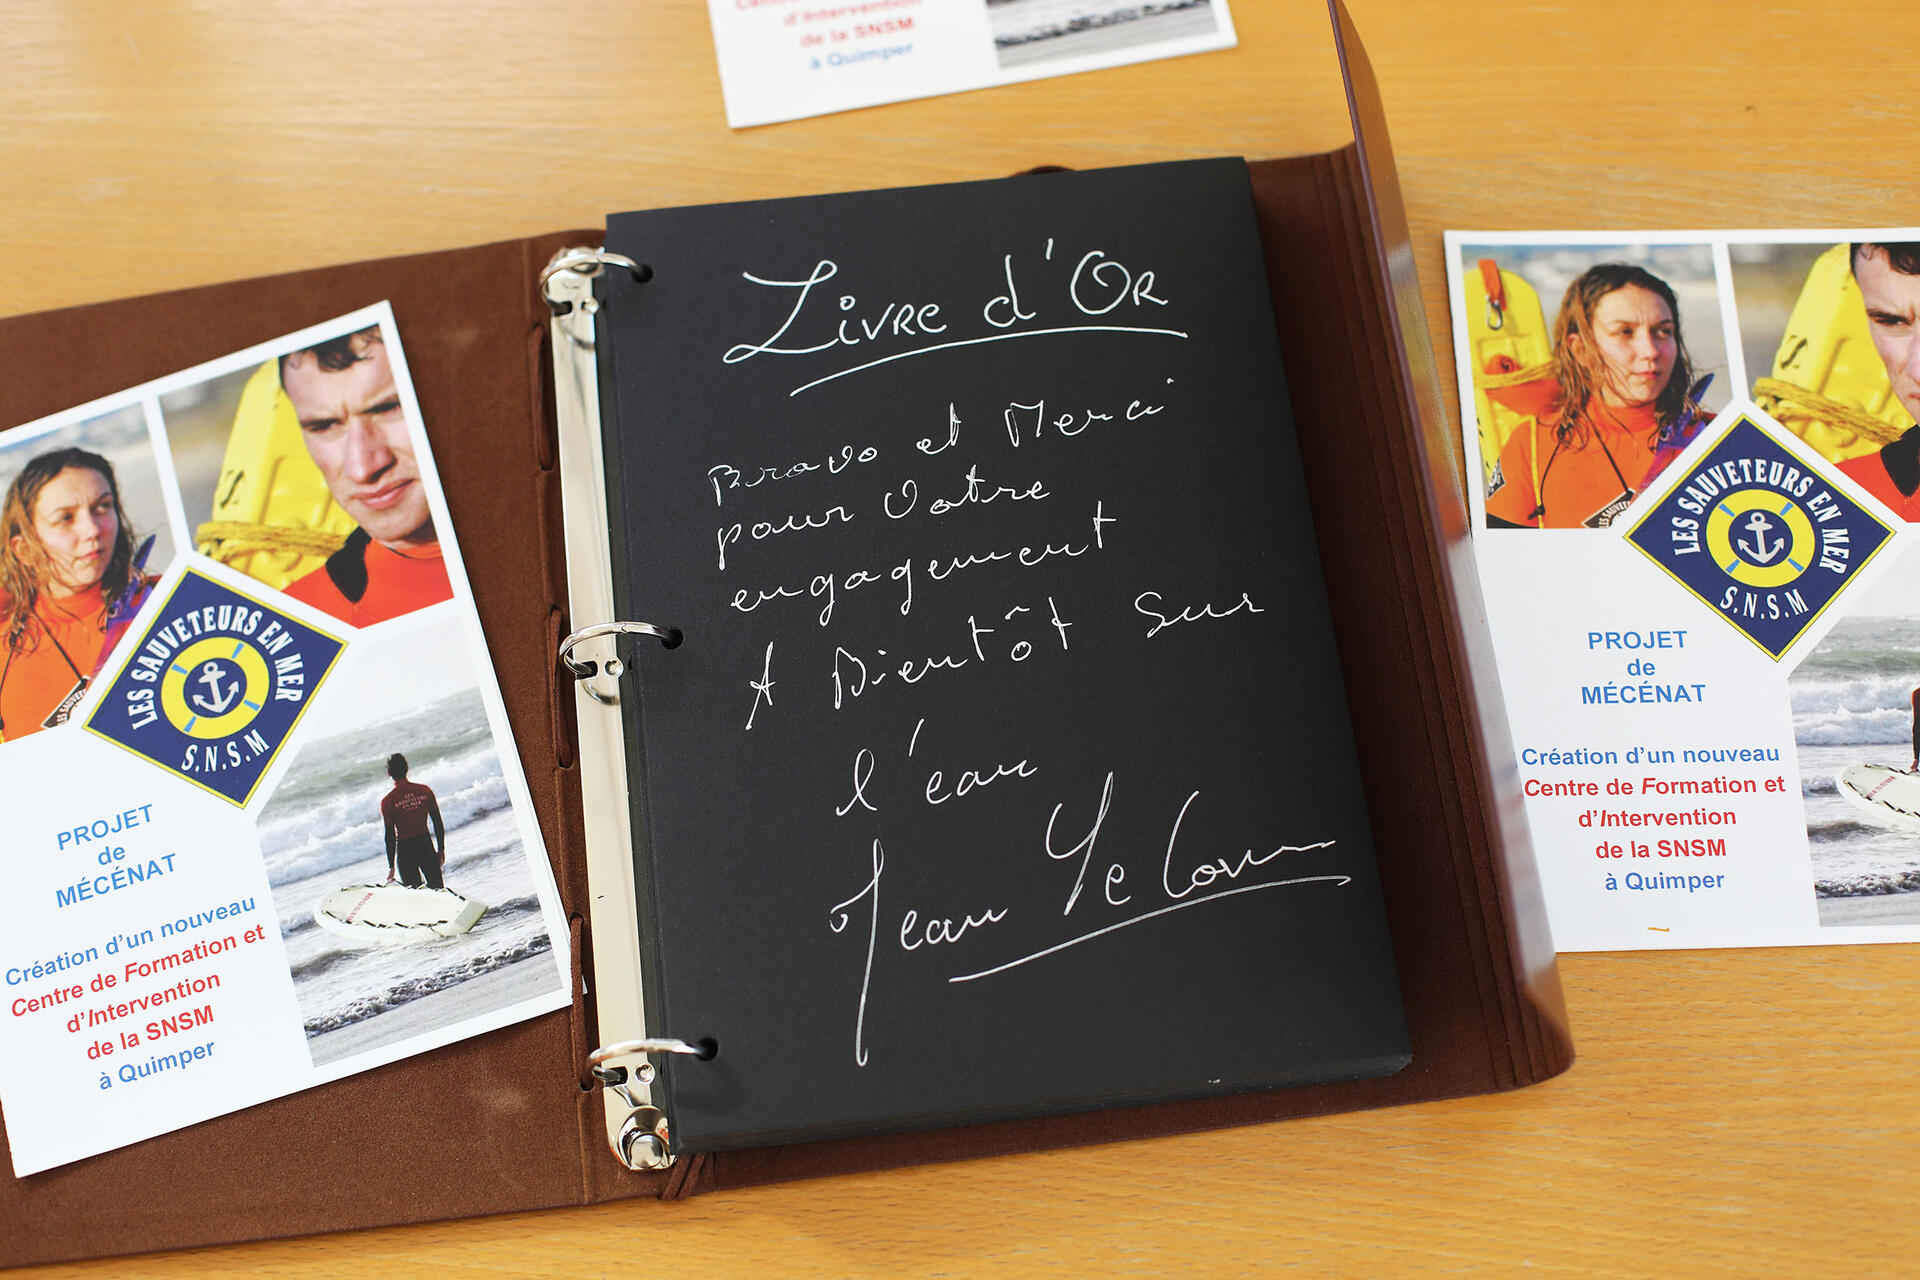 d'Intervention
de la SNSM
à Quimper
Livre d'Or
Bravo et Merci
pour Votre
engagement
A Bientôt sur
l'eau
Jean Le Cour
LES SAUVETEURS EN MER
S.N.S.M
PROJET
de
MÉCÉNAT
Création d'un nouveau
Centre de Formation et
d'Intervention
de la SNSM
à Quimper
LES SAUVETEURS EN MER
S.N.S.M
PROJET
de
MÉCÉNAT
Création d'un nouveau
Centre de Formation et
d'Intervention
de la SNSM
à Quimper